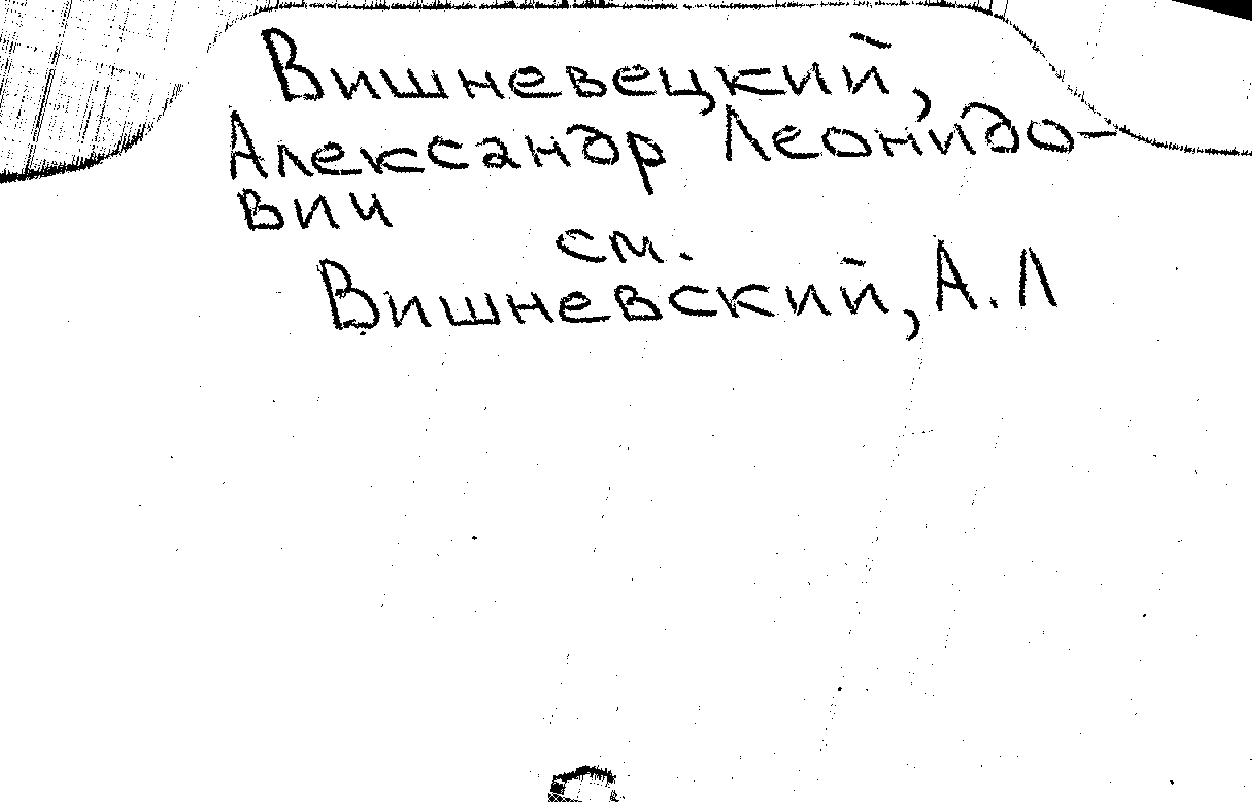 Вишневецкий,
Александр Леонидо-
вич
см.
Вишневский, А. Л